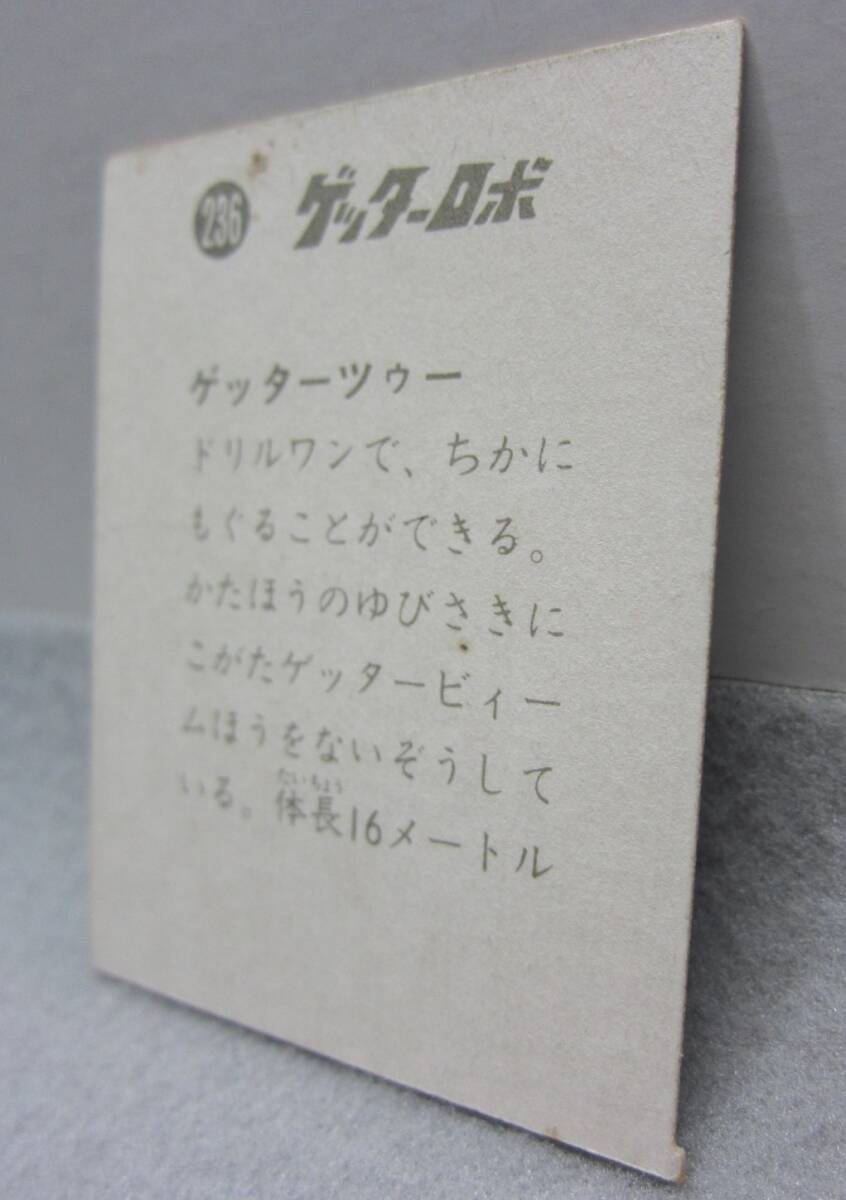 236 ゲッターロボ
ゲッターツゥー
ドリルワンで、ちかに
もぐることができる。
かたほうのゆびさきに
こがたゲッタービィー
ムほうをないぞうして
いる。体長16メートル
たいちょう